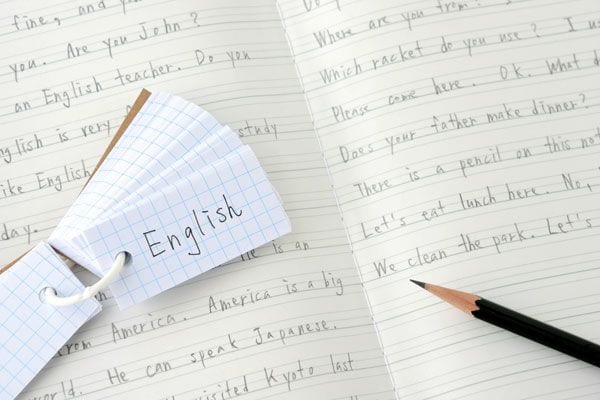 fine, and you
you. Are you John?
an English teacher. Do you
English is very
study
like English
day.
English
He is an
from America. America is a big
world. He can speak Japanese.
visited Kyoto last
Do
Where are you from?
Which racket do you use? I us
Please come here. Ok. What d
Does your father make dinner?
There is a pencil on this not
Let's eat lunch here. No,
We clean the park. Let's